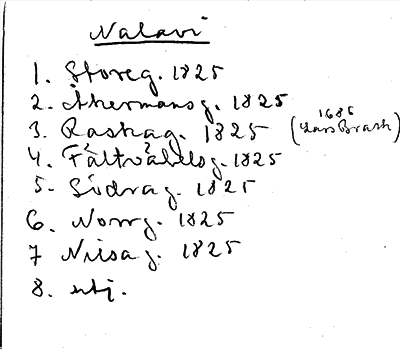 Nalavi
1. Storeg. 1825
2. Åkermansg. 1825
3. Raskag. 1825 (1685 Lars Brask)
4. Fältvåbelsg. 1825
5. Södrag. 1825
6. Norrg. 1825
7 Nisag. 1825
8. utj.